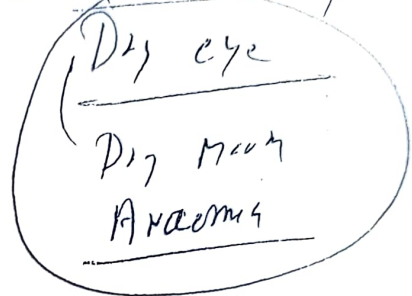 Dry eye
Dry mouth
Anaemia